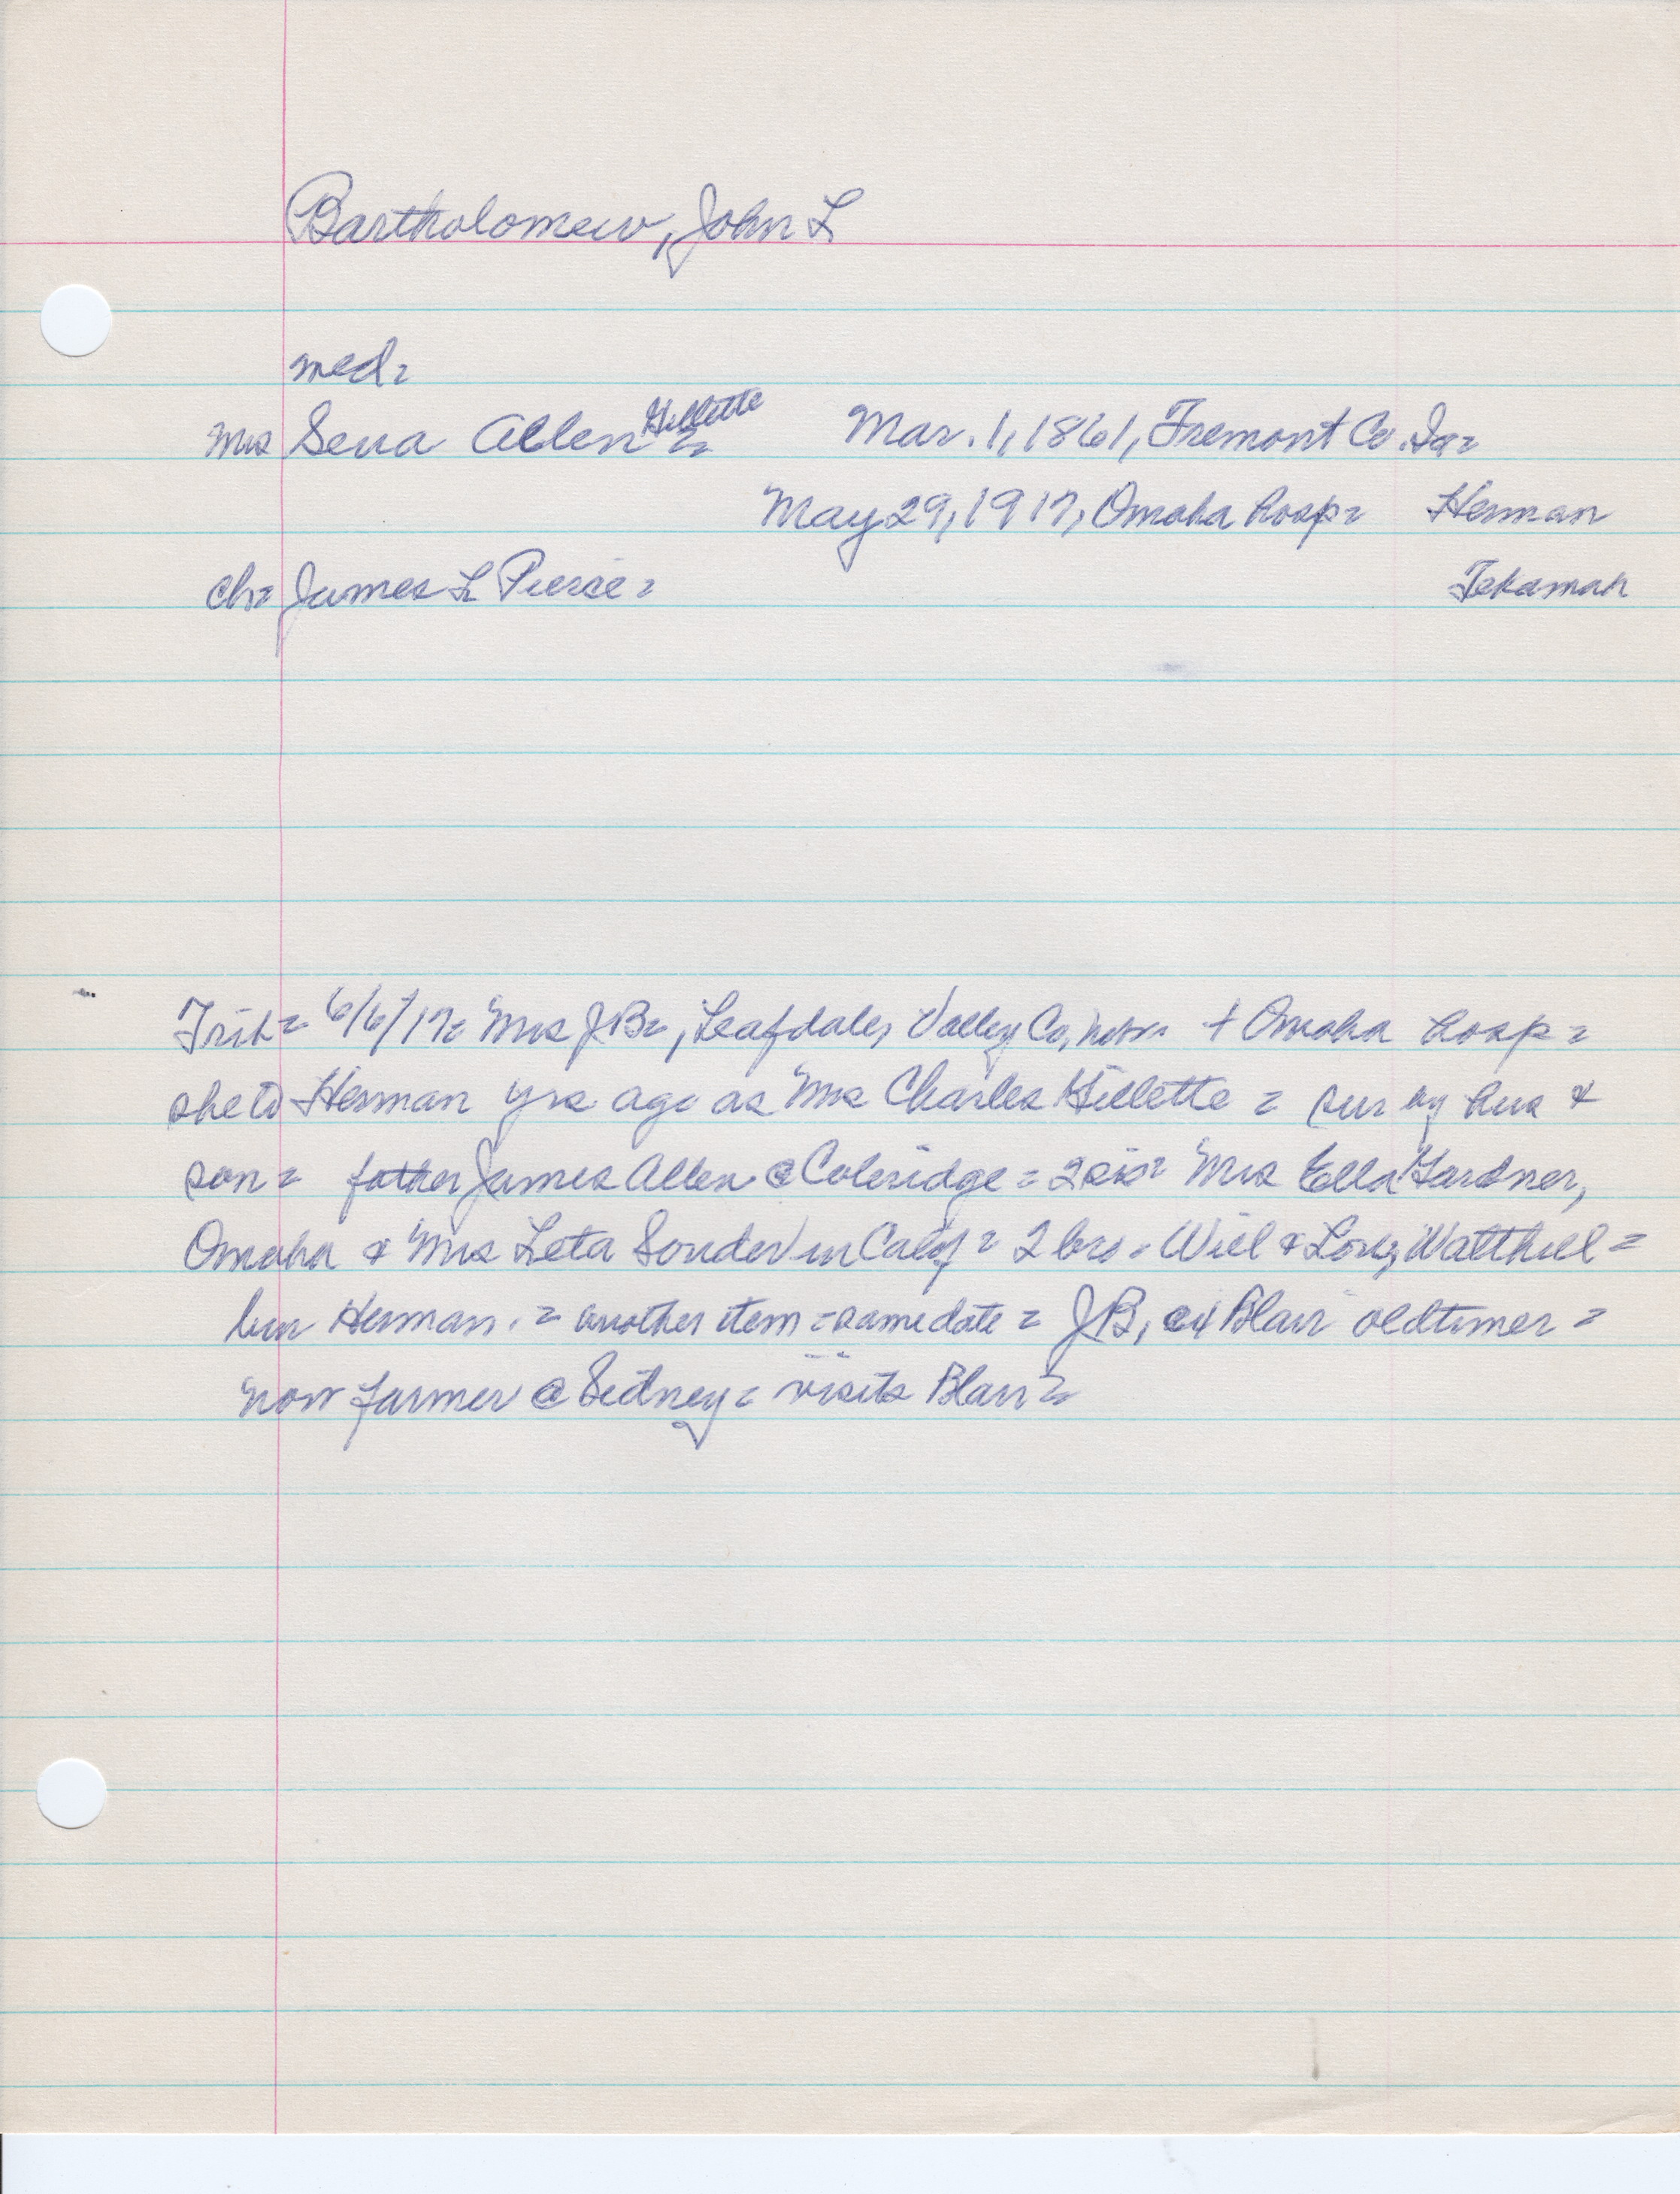 Bartholomew, John L
med=
Mrs Sena Allen Gillette = Mar. 1, 1861, Fremont Co. Ia=
May 29, 1917, Omaha hosp= Herman
ch= James L Pierce = Tekamah
Trib= 6/6/17= Mrs J B=, Leafdale, Valley Co, Nebr + Omaha hosp =
she to Herman yrs ago as Mrs Charles Gillette = sur by hus &
son = father James Allen @ Coleridge = 2 sis= Mrs Ella Gardner,
Omaha & Mrs Leta Souder in Calif = 2 bro = Will & Walthill =
bur Herman. = another item = same date = J B, ex Blair oldtimer =
now farmer @ Sidney = visits Blair =